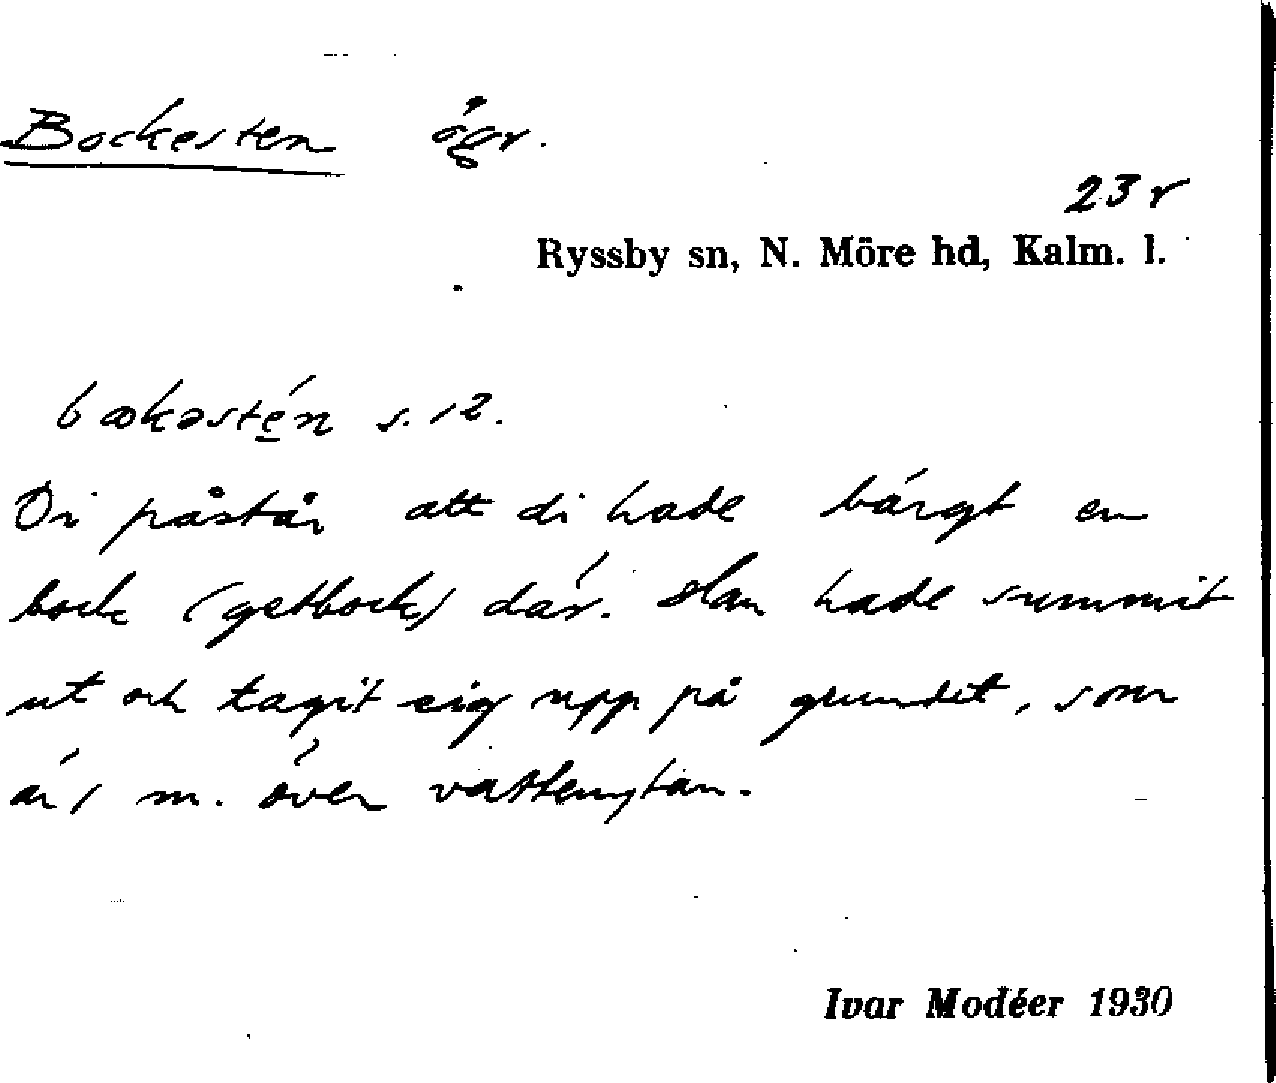 Bockesten ögr.
23 r
Ryssby sn, N. Möre hd, Kalm. l.
bωkəstén s. 12.
Di påstår att di hade bärgt en
bock (getbock) där. Han hade summit
ut och tagit sig upp på grundet, som
är 1 m. över vattenytan.
Ivar Modéer 1930